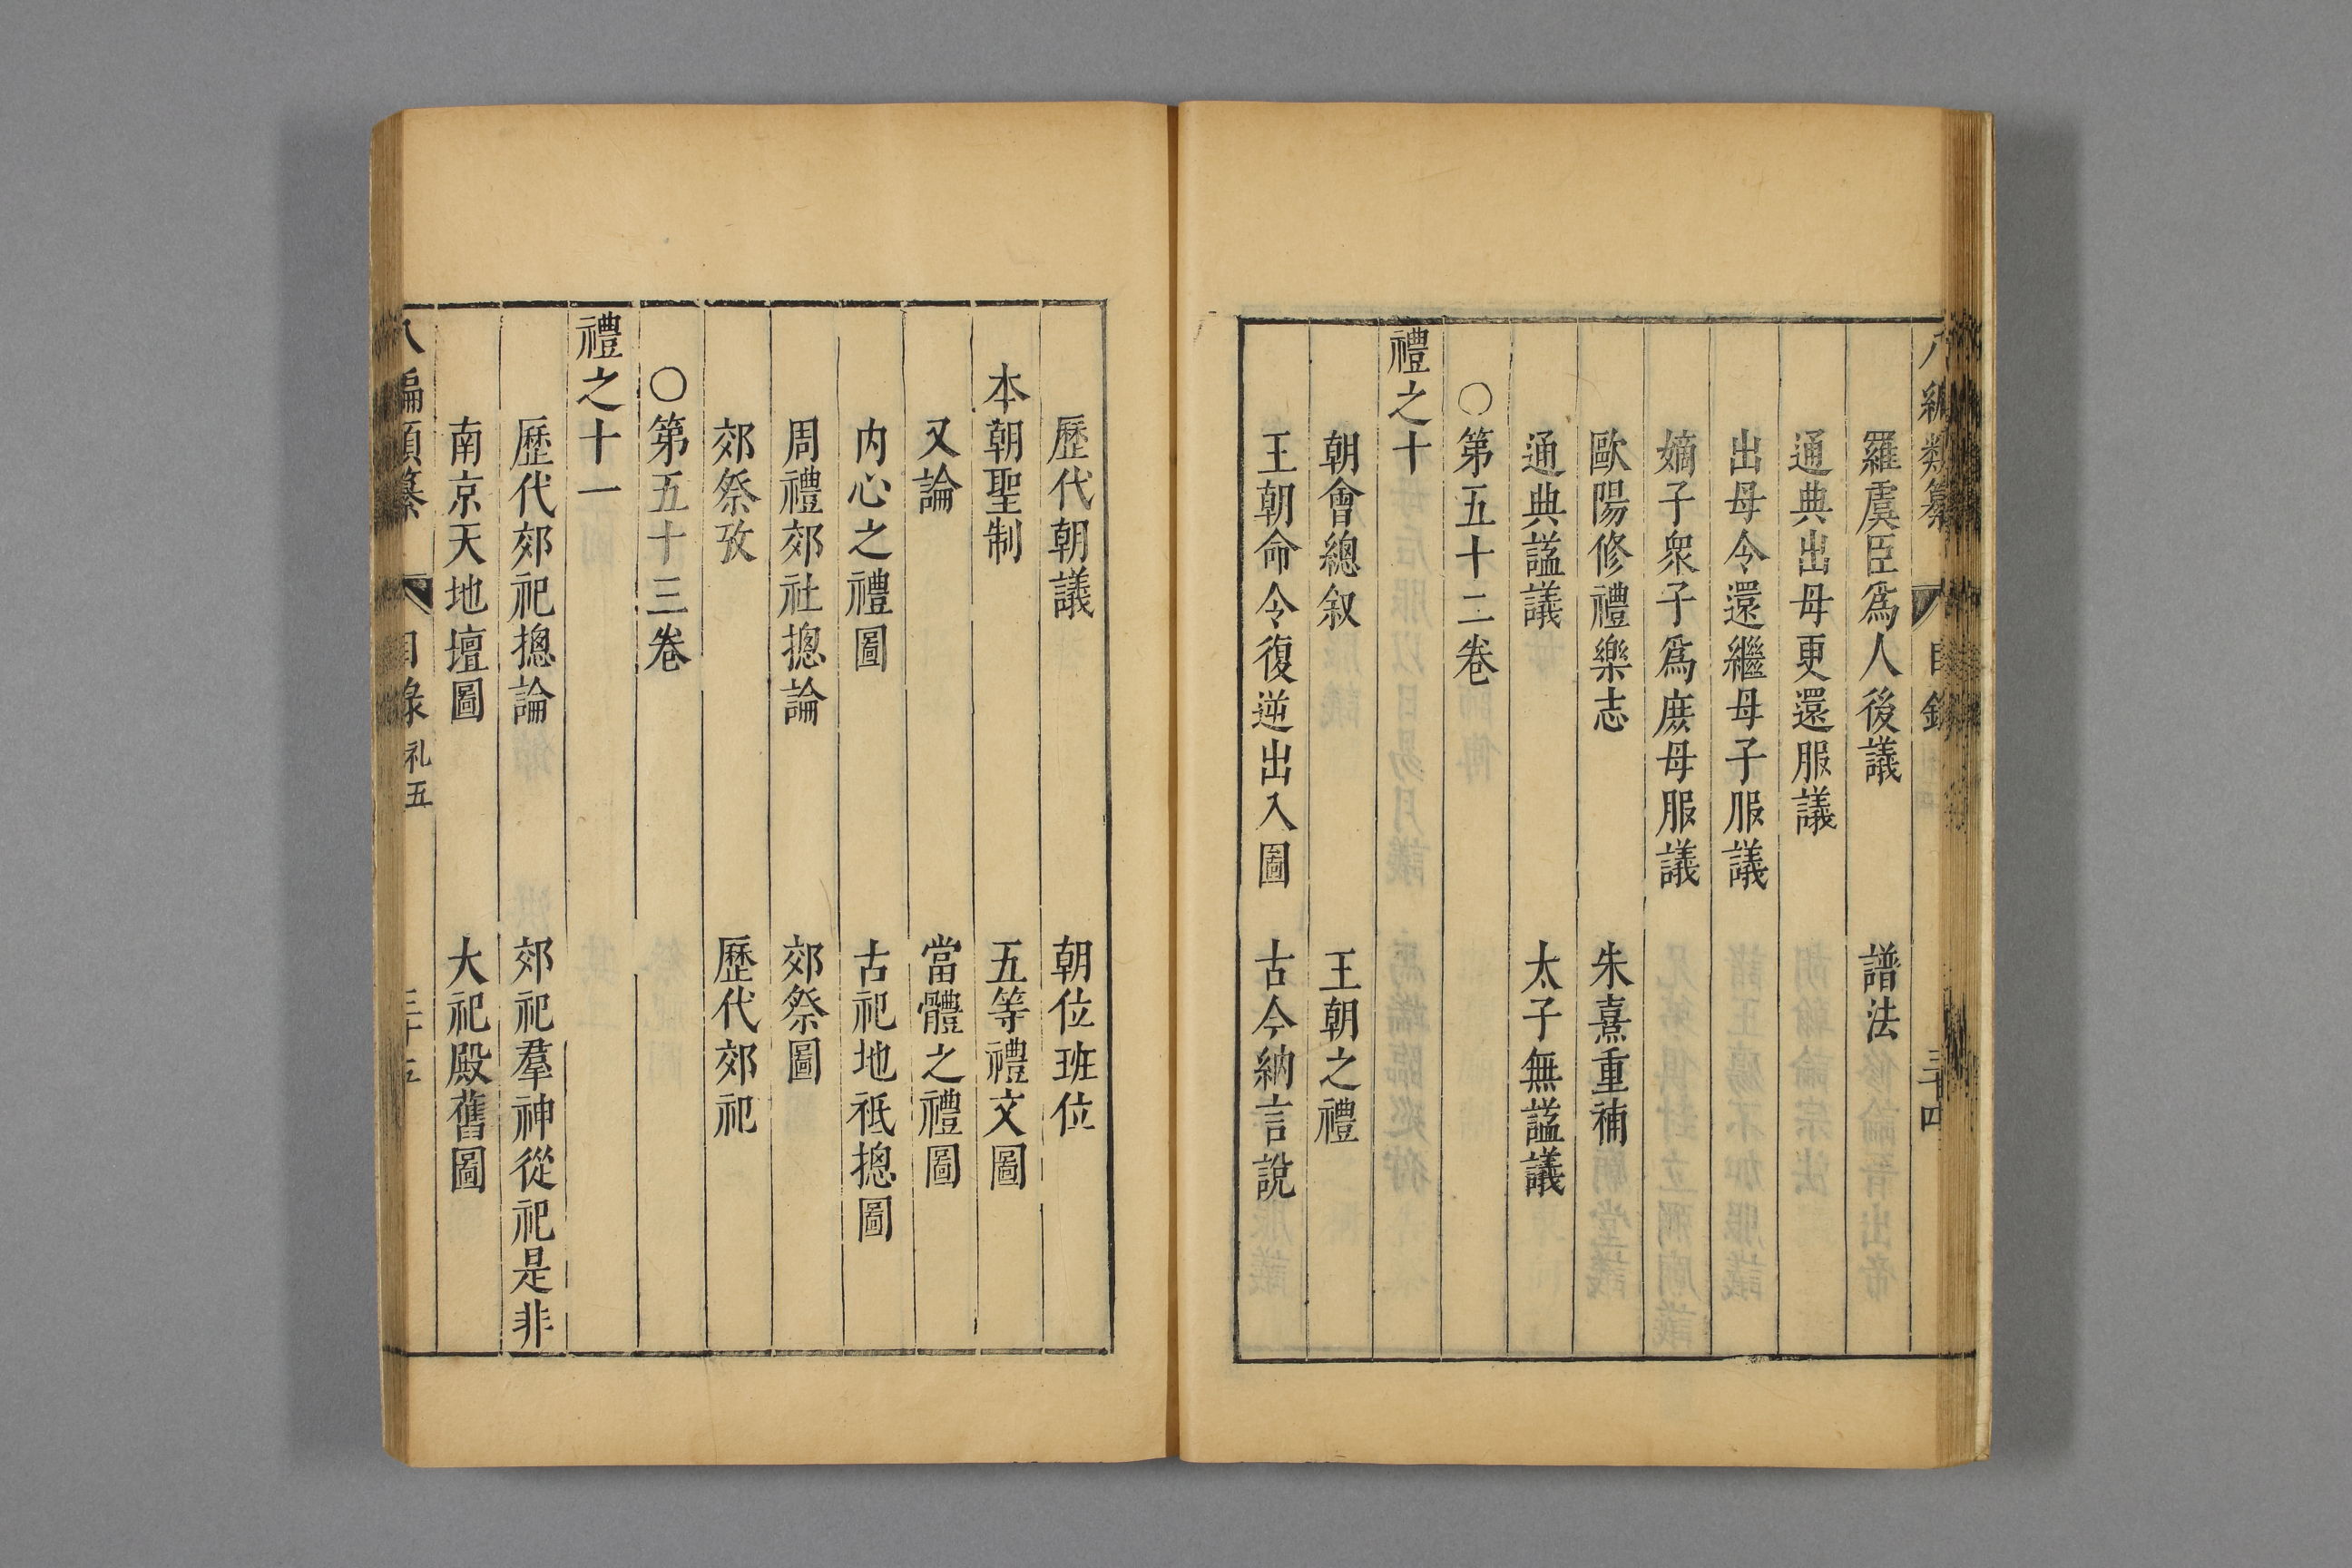 羅虞臣爲人後議　譜法
通典出母更還服議
出母令還繼母子服議
嫡子衆子爲庶母服議
歐陽修禮樂志　朱熹重補
通典諡議　太子無諡議
○第五十二卷
禮之十
朝會總叙　王朝之禮
王朝命令復逆出入圖　古今納言說
歷代朝議　朝位班位
本朝聖制　五等禮文圖
又論　當體之禮圖
内心之禮圖　古祀地祇摠圖
周禮郊社摠論　郊祭圖
郊祭攷　歷代郊祀
○第五十三卷
禮之十一
歷代郊祀摠論　郊祀羣神從祀是非
南京天地壇圖　大祀殿舊圖
八編類纂　目錄　礼五